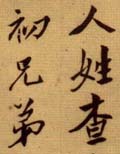 人姓查
初兄弟